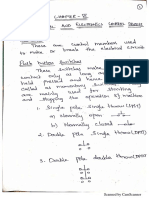 CHAPTER - VI
AND ELECTRONICS CONTROL DEVICES
These are control members used
to make or break the electrical circuit
Push button Switches
These switches make or break
contact only as long as
held pressed and hence,
making used for starting
and stopping the operation of
1. Single pole Single throw (SPST)
a) Normally open
b) Normally closed
2. Double pole Single throw (DPST)
3. Double pole double throw (DPDT)
Scanned by CamScanner